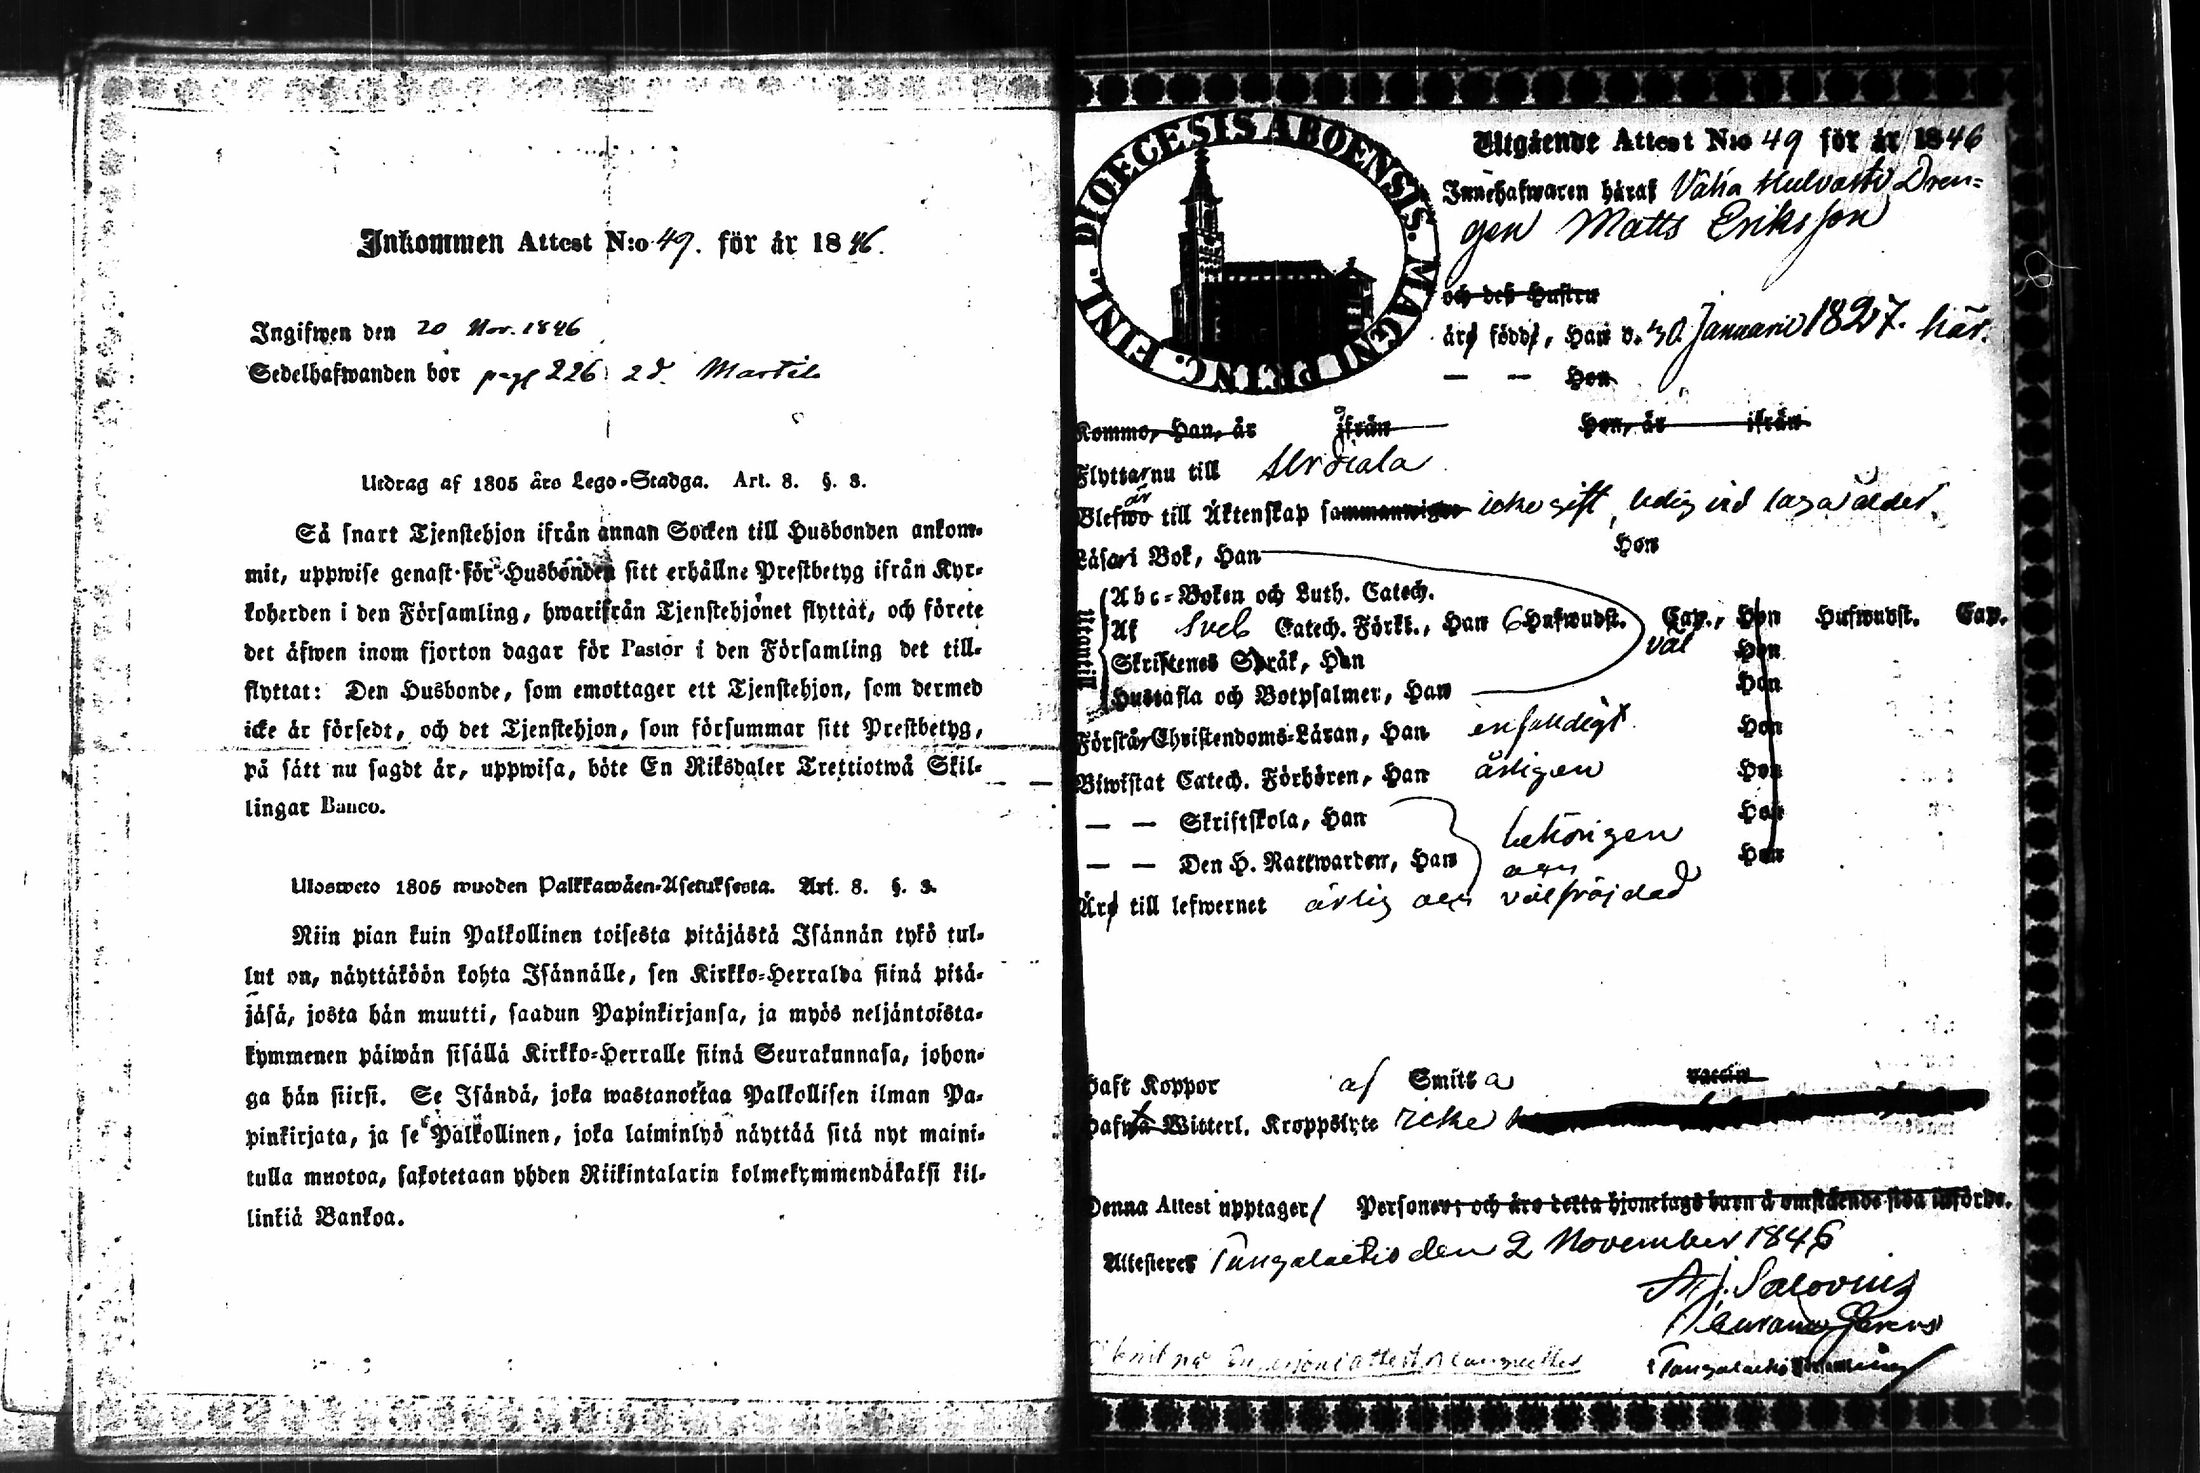 Inkommen Attest N:o 49. för år 1846.
Ingifwen den 20 Nov. 1846
Sedelhafwanden bor page 226 2 d. Martila
Utdrag af 1805 års Lego-Stadga. Art. 8. §. 8.
Så snart Tjenstehjon ifrån annan Socken till Husbonden ankom-
mit, uppwise genast för Husbonden sitt erhållne Prestbetyg ifrån Kyr-
koherden i den Församling, hwarifrån Tjenstehjonet flyttat, och förete
det äfwen inom fjorton dagar för Pastor i den Församling det till-
flyttat: Den Husbonde, som emottager ett Tjenstehjon, som dermed
icke är försedt, och det Tjenstehjon, som försummar sitt Prestbetyg,
på sätt nu sagdt är, uppwisa, böte En Riksdaler Trettiotwå Skil-
lingar Banco.
Ulosweto 1805 wuoden Palkkawäen-Asetuksesta. Art. 8. §. 3.
Niin pian kuin Palkollinen toisesta pitäjästä Isännän tykö tul-
lut on, näyttäköön kohta Isännälle, sen Kirkko-Herralda siinä pitä-
jäsä, josta hän muutti, saadun Papinkirjansa, ja myös neljäntoista-
kymmenen päiwän sisällä Kirkko-Herralle siinä Seurakunnasa, johon-
ga hän siirsi. Se Isändä, joka wastanottaa Palkollisen ilman Pa-
pinkirjata, ja se Palkollinen, joka laiminlyö näyttää sitä nyt maini-
tulla muotoa, sakotetaan yhden Riikintalarin kolmekymmendäkaksi kil-
linkiä Bankoa.
DIOECESIS ABOENSIS. MAGNI PRINC. FINL.
Utgående Attest N:o 49 för år 1846
Innehafwaren häraf Drän-
gen Matts Eriksson
och deß Hustru
äro födde, Han d. 30 Januarii 1827. här.
— — Hon
Kommo, Han, år ifrån Hon, år ifrån
Flytta nu till Urdiala
är
Blefwo till Äktenskap sammanwigde icke gift, ledig vid laga ålder.
Läsa i Bok, Han Hon
Utantill
Abc-Boken och Luth. Catech.
Af Sveb Catech. Förkl., Han 6 Hufwudst. Cap., Hon Hufwudst. Cap.
väl
Skriftenes Språk, Han Hon
Hustafla och Botpsalmer, Han Hon
Förstår Christendoms-Läran, Han enfaldigt Hon
Biwistat Catech. Förhören, Han årligen Hon
— — Skriftskola, Han behörigen Hon
— — Den H. Nattwarden, Han Hon
Äro till lefwernet ärlig och välfräjdad
Haft Koppor af Smitta vaccin
Hafwa Witterl. Kroppslyte icke
Denna Attest upptager 1 Personer; och äro detta hjonelags barn å omstående sida införde.
Attesteres Tungalaitio den 2 November 1846